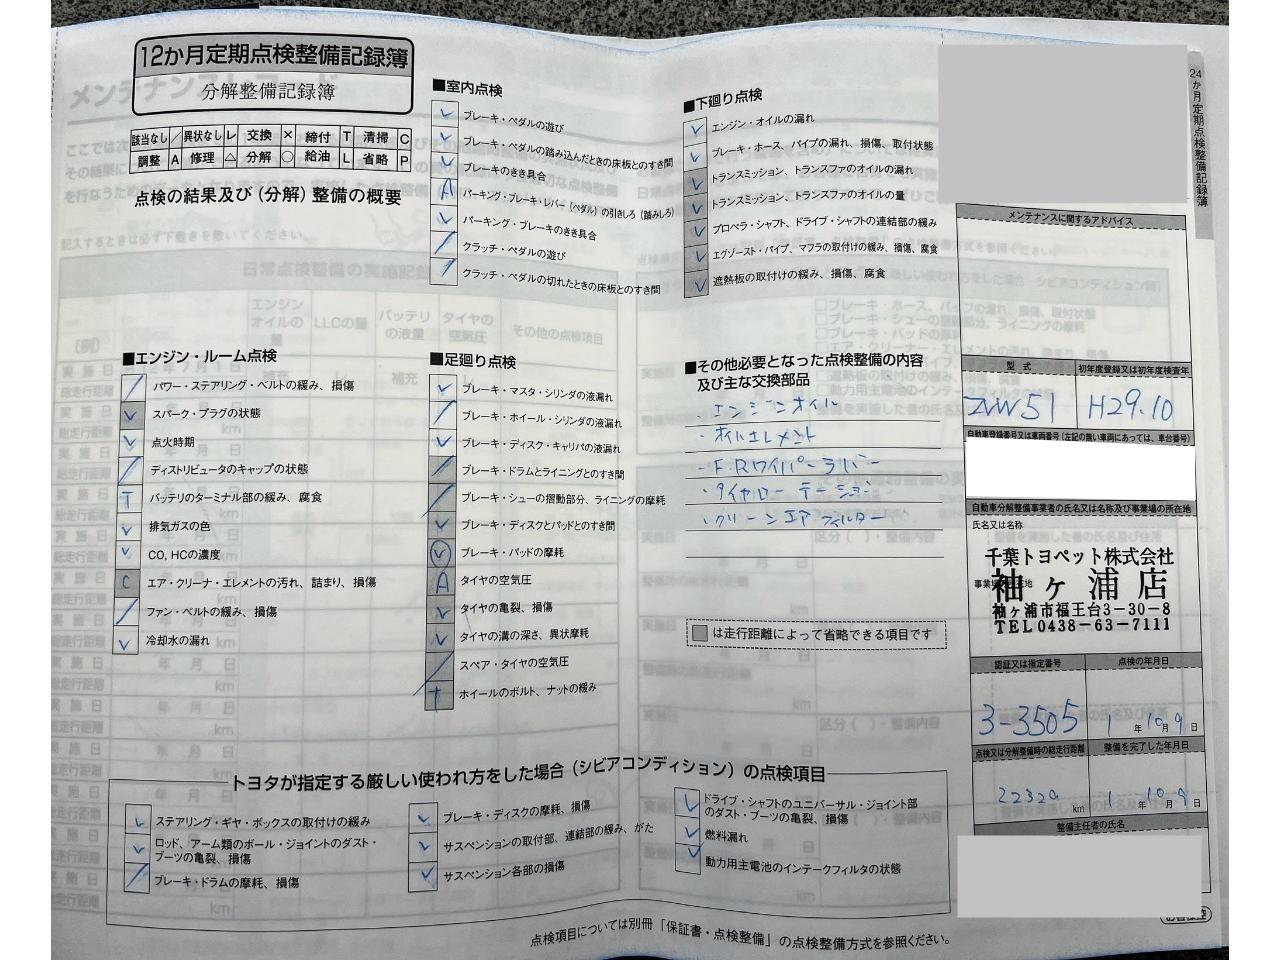 12か月定期点検整備記録簿
分解整備記録簿
該当なし ／ 異状なし レ 交換 × 締付 T 清掃 C
調整 A 修理 △ 分解 ○ 給油 L 省略 P
点検の結果及び（分解）整備の概要
■室内点検
レ ブレーキ・ペダルの遊び
レ ブレーキ・ペダルの踏み込んだときの床板とのすき間
レ ブレーキのきき具合
A パーキング・ブレーキ・レバー（ペダル）の引きしろ（踏みしろ）
レ パーキング・ブレーキのきき具合
／ クラッチ・ペダルの遊び
／ クラッチ・ペダルの切れたときの床板とのすき間
■下廻り点検
レ エンジン・オイルの漏れ
レ ブレーキ・ホース、パイプの漏れ、損傷、取付状態
レ トランスミッション、トランスファのオイルの漏れ
レ トランスミッション、トランスファのオイルの量
レ プロペラ・シャフト、ドライブ・シャフトの連結部の緩み
レ エグゾースト・パイプ、マフラの取付けの緩み、損傷、腐食
レ 遮熱板の取付けの緩み、損傷、腐食
■エンジン・ルーム点検
／ パワー・ステアリング・ベルトの緩み、損傷
レ スパーク・プラグの状態
レ 点火時期
／ ディストリビュータのキャップの状態
T バッテリのターミナル部の緩み、腐食
レ 排気ガスの色
レ CO、HCの濃度
C エア・クリーナ・エレメントの汚れ、詰まり、損傷
／ ファン・ベルトの緩み、損傷
レ 冷却水の漏れ
■足廻り点検
レ ブレーキ・マスタ・シリンダの液漏れ
／ ブレーキ・ホイール・シリンダの液漏れ
レ ブレーキ・ディスク・キャリパの液漏れ
／ ブレーキ・ドラムとライニングとのすき間
／ ブレーキ・シューの摺動部分、ライニングの摩耗
レ ブレーキ・ディスクとパッドとのすき間
レ ブレーキ・パッドの摩耗
A タイヤの空気圧
レ タイヤの亀裂、損傷
レ タイヤの溝の深さ、異状摩耗
／ スペア・タイヤの空気圧
T ホイールのボルト、ナットの緩み
■その他必要となった点検整備の内容
及び主な交換部品
・エンジンオイル
・オイルエレメント
・F.Rワイパーラバー
・タイヤローテーション
・クリーンエアフィルター
は走行距離によって省略できる項目です
24か月定期点検整備記録簿
メンテナンスに関するアドバイス
型式 初年度登録又は初年度検査年
ZVW51 H29.10
自動車登録番号又は車両番号（左記の無い車両にあっては、車台番号）
自動車分解整備事業者の氏名又は名称及び事業場の所在地
氏名又は名称
千葉トヨペット株式会社
袖ヶ浦店
袖ヶ浦市福王台3-30-8
TEL0438-63-7111
認証又は指定番号 点検の年月日
3-3505 1年10月9日
点検又は分解整備時の総走行距離 整備を完了した年月日
km 1年10月9日
整備主任者の氏名
トヨタが指定する厳しい使われ方をした場合（シビアコンディション）の点検項目
レ ステアリング・ギヤ・ボックスの取付けの緩み
レ ロッド、アーム類のボール・ジョイントのダスト・
ブーツの亀裂、損傷
／ ブレーキ・ドラムの摩耗、損傷
レ ブレーキ・ディスクの摩耗、損傷
レ サスペンションの取付部、連結部の緩み、がた
レ サスペンション各部の損傷
レ ドライブ・シャフトのユニバーサル・ジョイント部
のダスト・ブーツの亀裂、損傷
レ 燃料漏れ
レ 動力用主電池のインテークフィルタの状態
点検項目については別冊「保証書・点検整備」の点検整備方式を参照ください。